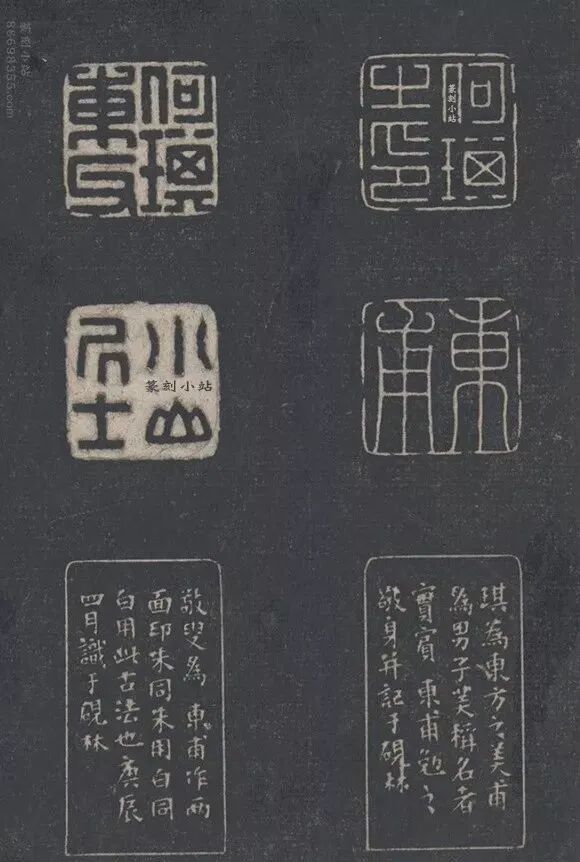 何琪
之印
篆刻小站
何琪
東父
東甫
小山
居士
篆刻小站
琪為東方之美甫
為男子美稱名者
實賓東甫勉之
敬身并記于硯林
敬叟為東甫作兩
面印朱同朱用白同
白用此古法也庚辰
四月識于硯林